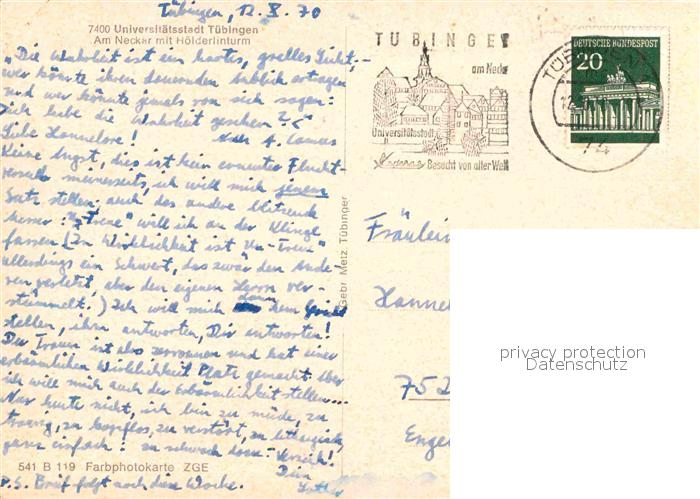 Tübingen, 12. X. 70
7400 Universitätsstadt Tübingen
Am Neckar mit Hölderlinturm
„Die Wahrheit ist ein hartes, grelles Licht,
wer könnte ihren dauernden Anblick ertragen
und wer könnte jemals von sich sagen:
Ich habe die Wahrheit gesehen?"
Nach A. Camus
Liebe Hannelore!
Keine Angst, dies ist kein erneuter Flucht-
versuch meinerseits, ich will mich jenem
Satz stellen; auch das andere blitzende
Messer: "Treue" will ich an der Klinge
fassen. (In Wirklichkeit ist Un-Treue
allerdings ein Schwert, das zwar den Ande-
ren verletzt, aber den eigenen Herrn ver-
stümmelt.) Ich will mich dem
stellen, ihm antworten, Dir antworten!
Der Traum ist also zerronnen und hat einer
erbärmlichen Wirklichkeit Platz gemacht. Aber
ich will mich auch der Erbärmlichkeit stellen...
Nur heute nicht, ich bin zu müde, zu
traurig, zu kopflos, zu verstört, zu lethargisch,
ganz einfach: zu schwach dazu. Verzeih!
Dein
Lothar
541 B 119 Farbphotokarte ZGE
P.S. Brief folgt noch diese Woche.
Gebr. Metz, Tübingen
TÜBINGEN
am Neckar
Universitätsstadt
Besucht von aller Welt
DEUTSCHE BUNDESPOST
20
74
Fräulein
Hanne
75
Enge
privacy protection
Datenschutz